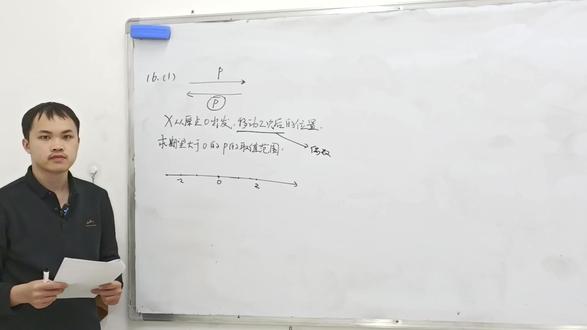 16.(1)
P
P
X从原点0出发,移动2次后的位置.
求期望大于0的P的取值范围.
偶数
-2 0 2